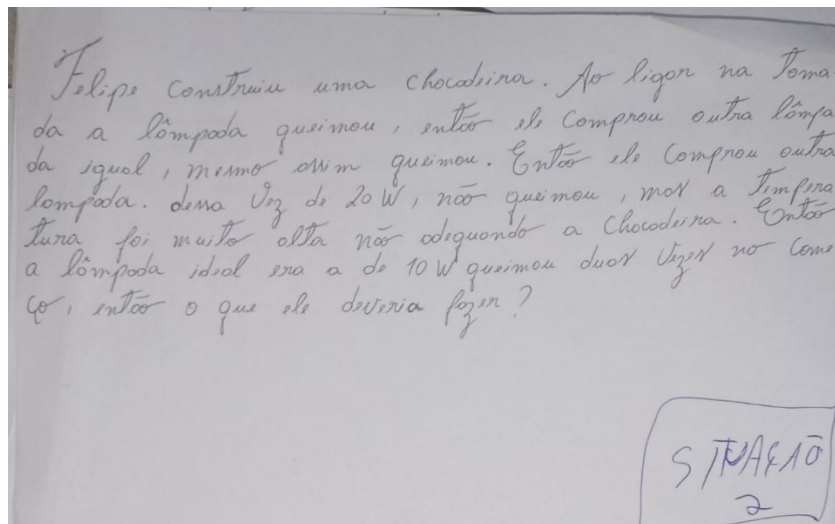 Felipe construiu uma chocadeira. Ao ligar na toma
da a lâmpada queimou, então ele comprou outra lâmpa
da igual, mesmo assim queimou. Então ele comprou outra
lampada. dessa vez de 20 W, não queimou, mas a tempera
tura foi muito alta não adequando a chocadeira. Então
a lâmpada ideal era a de 10 W queimou duas vezes no come
ço, então o que ele deveria fazer?
SITUAÇÃO
2